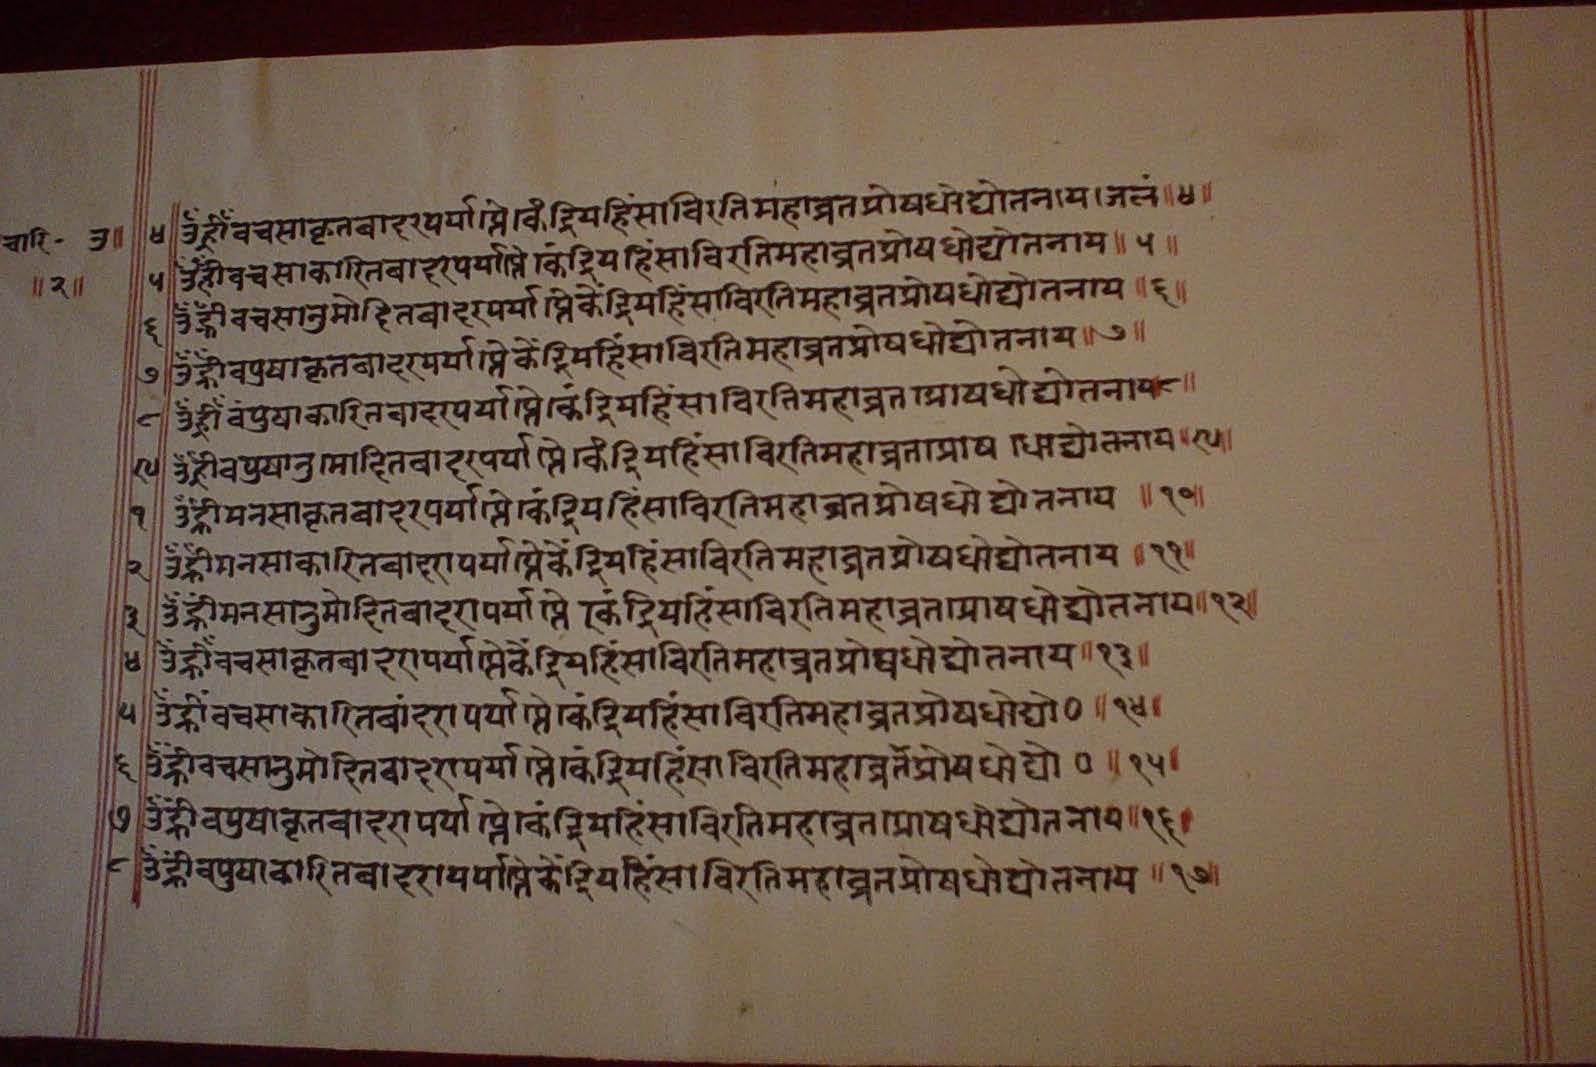 चारि - ३॥
॥२॥
४ ॐह्रीँवचसाकृतबादरपर्याप्तेाकेंद्रियहिंसाविरतिमहाव्रतप्रोषधोद्योतनाय।जलं॥४॥
५ ॐह्रीँवचसाकारितबादरपर्याप्तेाकेंद्रियहिंसाविरतिमहाव्रतप्रोषधोद्योतनाय॥५॥
६ ॐह्रीँवचसानुमोदितबादरपर्याप्तेकेंद्रियहिंसाविरतिमहाव्रतप्रोषधोद्योतनाय॥६॥
७ ॐह्रीँवपुषाकृतबादरपर्याप्तेकेंद्रियहिंसाविरतिमहाव्रतप्रोषधोद्योतनाय॥७॥
८ ॐह्रीँवंपुषाकारितबादरपर्याप्तेाकेंद्रियहिंसाविरतिमहाव्रतप्रोषधोद्योतनाय८॥
९ ॐह्रीँवपुषानुमोदितबादरपर्याप्तेाकेंद्रियहिंसाविरतिमहाव्रतप्रोषधोद्योतनाय॥९॥
१ ॐह्रीँमनसाकृतबादरपर्याप्तेाकेंद्रियहिंसाविरतिमहाव्रतप्रोषधोद्योतनाय ॥१०॥
२ ॐह्रीँमनसाकारितबादरापर्याप्तेकेंद्रियहिंसाविरतिमहाव्रतप्रोषधोद्योतनाय ॥११॥
३ ॐह्रीँमनसानुमोदितबादरापर्याप्तेकेंद्रियहिंसाविरतिमहाव्रतप्रोषधोद्योतनाय॥१२॥
४ ॐह्रीँवचसाकृतबादरापर्याप्तेकेंद्रियहिंसाविरतिमहाव्रतप्रोषधोद्योतनाय॥१३॥
५ ॐह्रीँवचसाकारितबांदरापर्याप्तेाकेंद्रियहिंसाविरतिमहाव्रतप्रोषधोद्यो०॥१४॥
६ ॐह्रीँवचसानुमोदितबादरापर्याप्तेाकेंद्रियहिंसाविरतिमहाव्रतप्रोषधोद्यो०॥१५॥
७ ॐह्रीँवपुषाकृतबादरापर्याप्तेाकेंद्रियहिंसाविरतिमहाव्रतप्रोषधोद्योतनाय॥१६॥
८ ॐह्रीँवपुषाकारितबादरापर्याप्तेकेंद्रियहिंसाविरतिमहाव्रतप्रोषधोद्योतनाय ॥१७॥